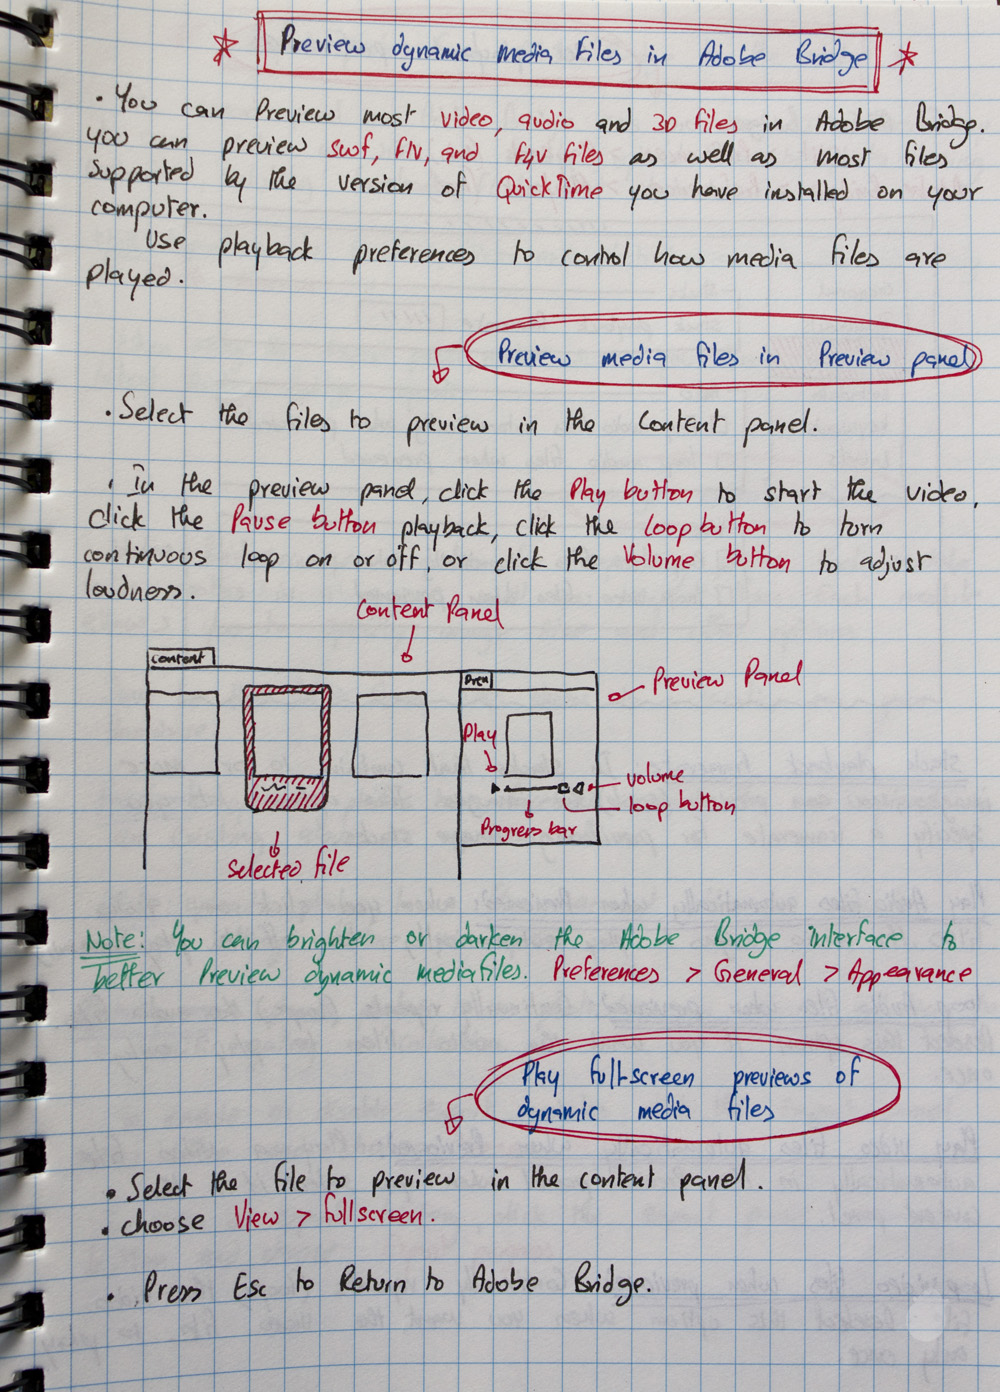 Preview dynamic media files in Adobe Bridge
• You can Preview most video, audio and 3D files in Adobe Bridge.
you can preview swf, flv, and f4v files as well as most files
supported by the version of QuickTime you have installed on your
computer.
Use playback preferences to control how media files are
played.
Preview media files in Preview panel
• Select the files to preview in the Content panel.
• In the preview panel, click the Play button to start the video,
click the Pause button playback, click the loop button to turn
continuous loop on or off, or click the Volume button to adjust
loudness.
Content Panel
Content
Prev
Preview Panel
Play
volume
loop button
Progress bar
Selected file
Note: You can brighten or darken the Adobe Bridge interface to
better Preview dynamic media files. Preferences > General > Appearance
Play full-screen previews of
dynamic media files
• Select the file to preview in the content panel.
• choose View > fullscreen.
• Press Esc to Return to Adobe Bridge.